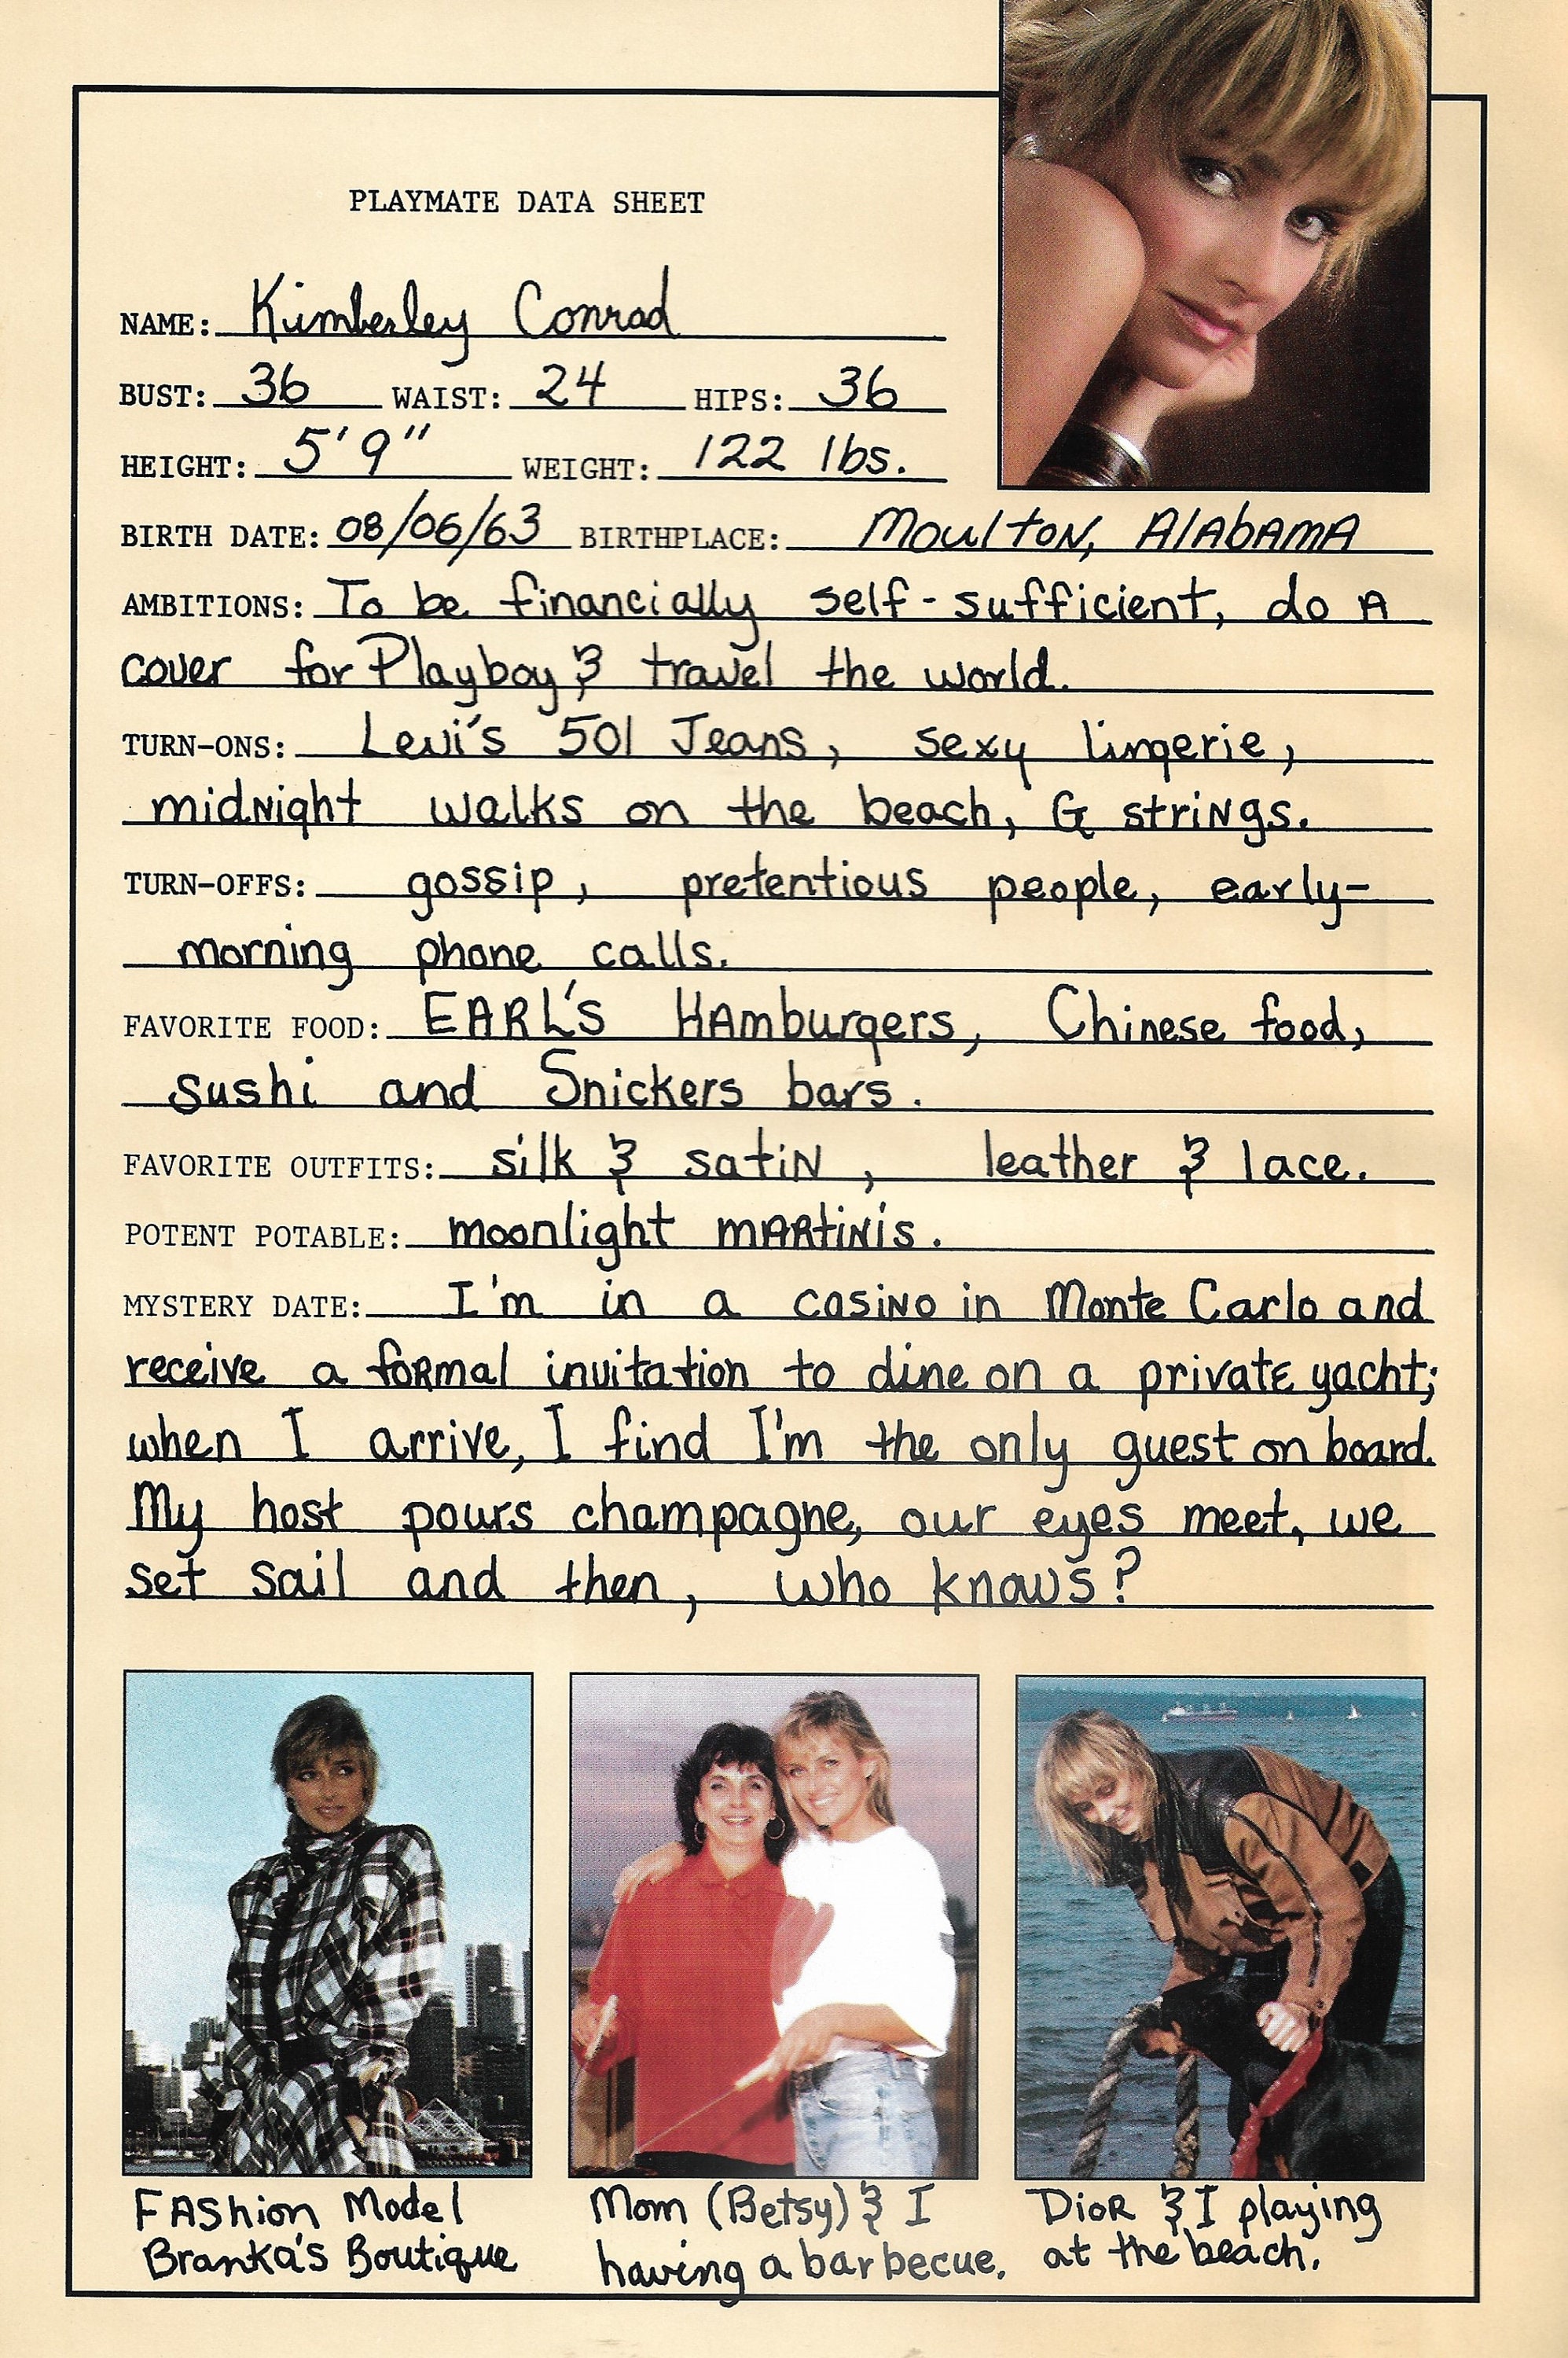 PLAYMATE DATA SHEET
NAME: Kimberley Conrad
BUST: 36 WAIST: 24 HIPS: 36
HEIGHT: 5'9" WEIGHT: 122 lbs.
BIRTH DATE: 08/06/63 BIRTHPLACE: Moulton, Alabama
AMBITIONS: To be financially self-sufficient, do a
cover for Playboy & travel the world.
TURN-ONS: Levi's 501 Jeans, sexy lingerie,
midnight walks on the beach, G strings.
TURN-OFFS: gossip, pretentious people, early-
morning phone calls.
FAVORITE FOOD: EARL'S Hamburgers, Chinese food,
sushi and Snickers bars.
FAVORITE OUTFITS: silk & satin, leather & lace.
POTENT POTABLE: moonlight martinis.
MYSTERY DATE: I'm in a casino in Monte Carlo and
receive a formal invitation to dine on a private yacht;
when I arrive, I find I'm the only guest on board.
My host pours champagne, our eyes meet, we
set sail and then, who knows?
Fashion Model
Branka's Boutique
Mom (Betsy) & I
having a barbecue.
Dior & I playing
at the beach.